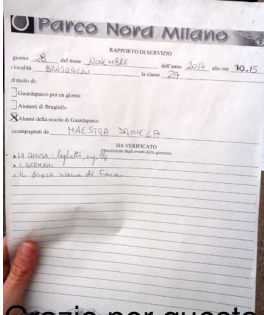 Parco Nord Milano
RAPPORTO DI SERVIZIO
giorno 28 del mese NOVEMBRE dell'anno 2014, alle ore 10.15
località BRUSUGLIO la classe 2A
di titolo di:
Guardaparco per un giorno
Aiutanti di Brugiallo
X Alunni della scuola di Guardaparco
accompagnati da MAESTRA DANIELA
HA VERIFICATO
(Descrizione degli eventi della giornata)
• LA CHIUSA:
• I GERMANI
• IL BOSCO
Grazie per questa